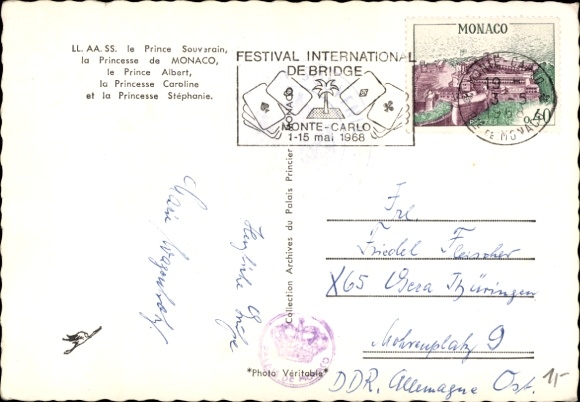 LL. AA. SS. le Prince Souverain,
la Princesse de MONACO,
le Prince Albert,
la Princesse Caroline
et la Princesse Stéphanie.
FESTIVAL INTERNATIONAL
DE BRIDGE
MONACO
MONTE-CARLO
1-15 mai 1968
MONACO
0,40
MONTE-CARLO
19
Collection Archives du Palais Princier
Herzliche Grüße
Frl.
Friedel Fleischer
X65 Gera Thüringen
Mohrenplatz 9
DDR. Allemagne Ost.
1,-
*Photo Véritable*
DE MONACO